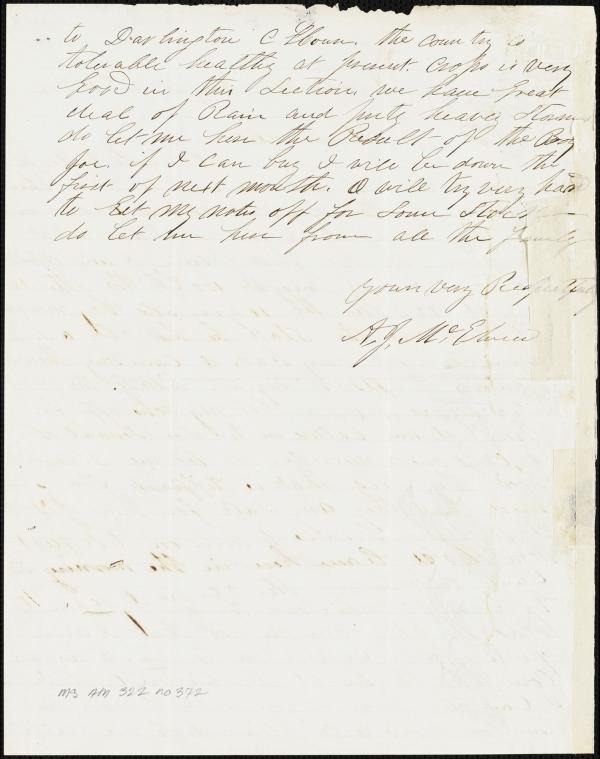 to Darlington C House. the country is
tolerable healthy at present. crops is very
good in this Section. we have great
deal of Rain and prity heavey Storms
do let me hear the Result of the Boy
Joe. if I can buy I will be down the
first of next month. I will try very hard
to let my notes off for some Stock
do let me hear from all the family
yours very Respectfully
A. J. McElveen
MS AM 322 no 372